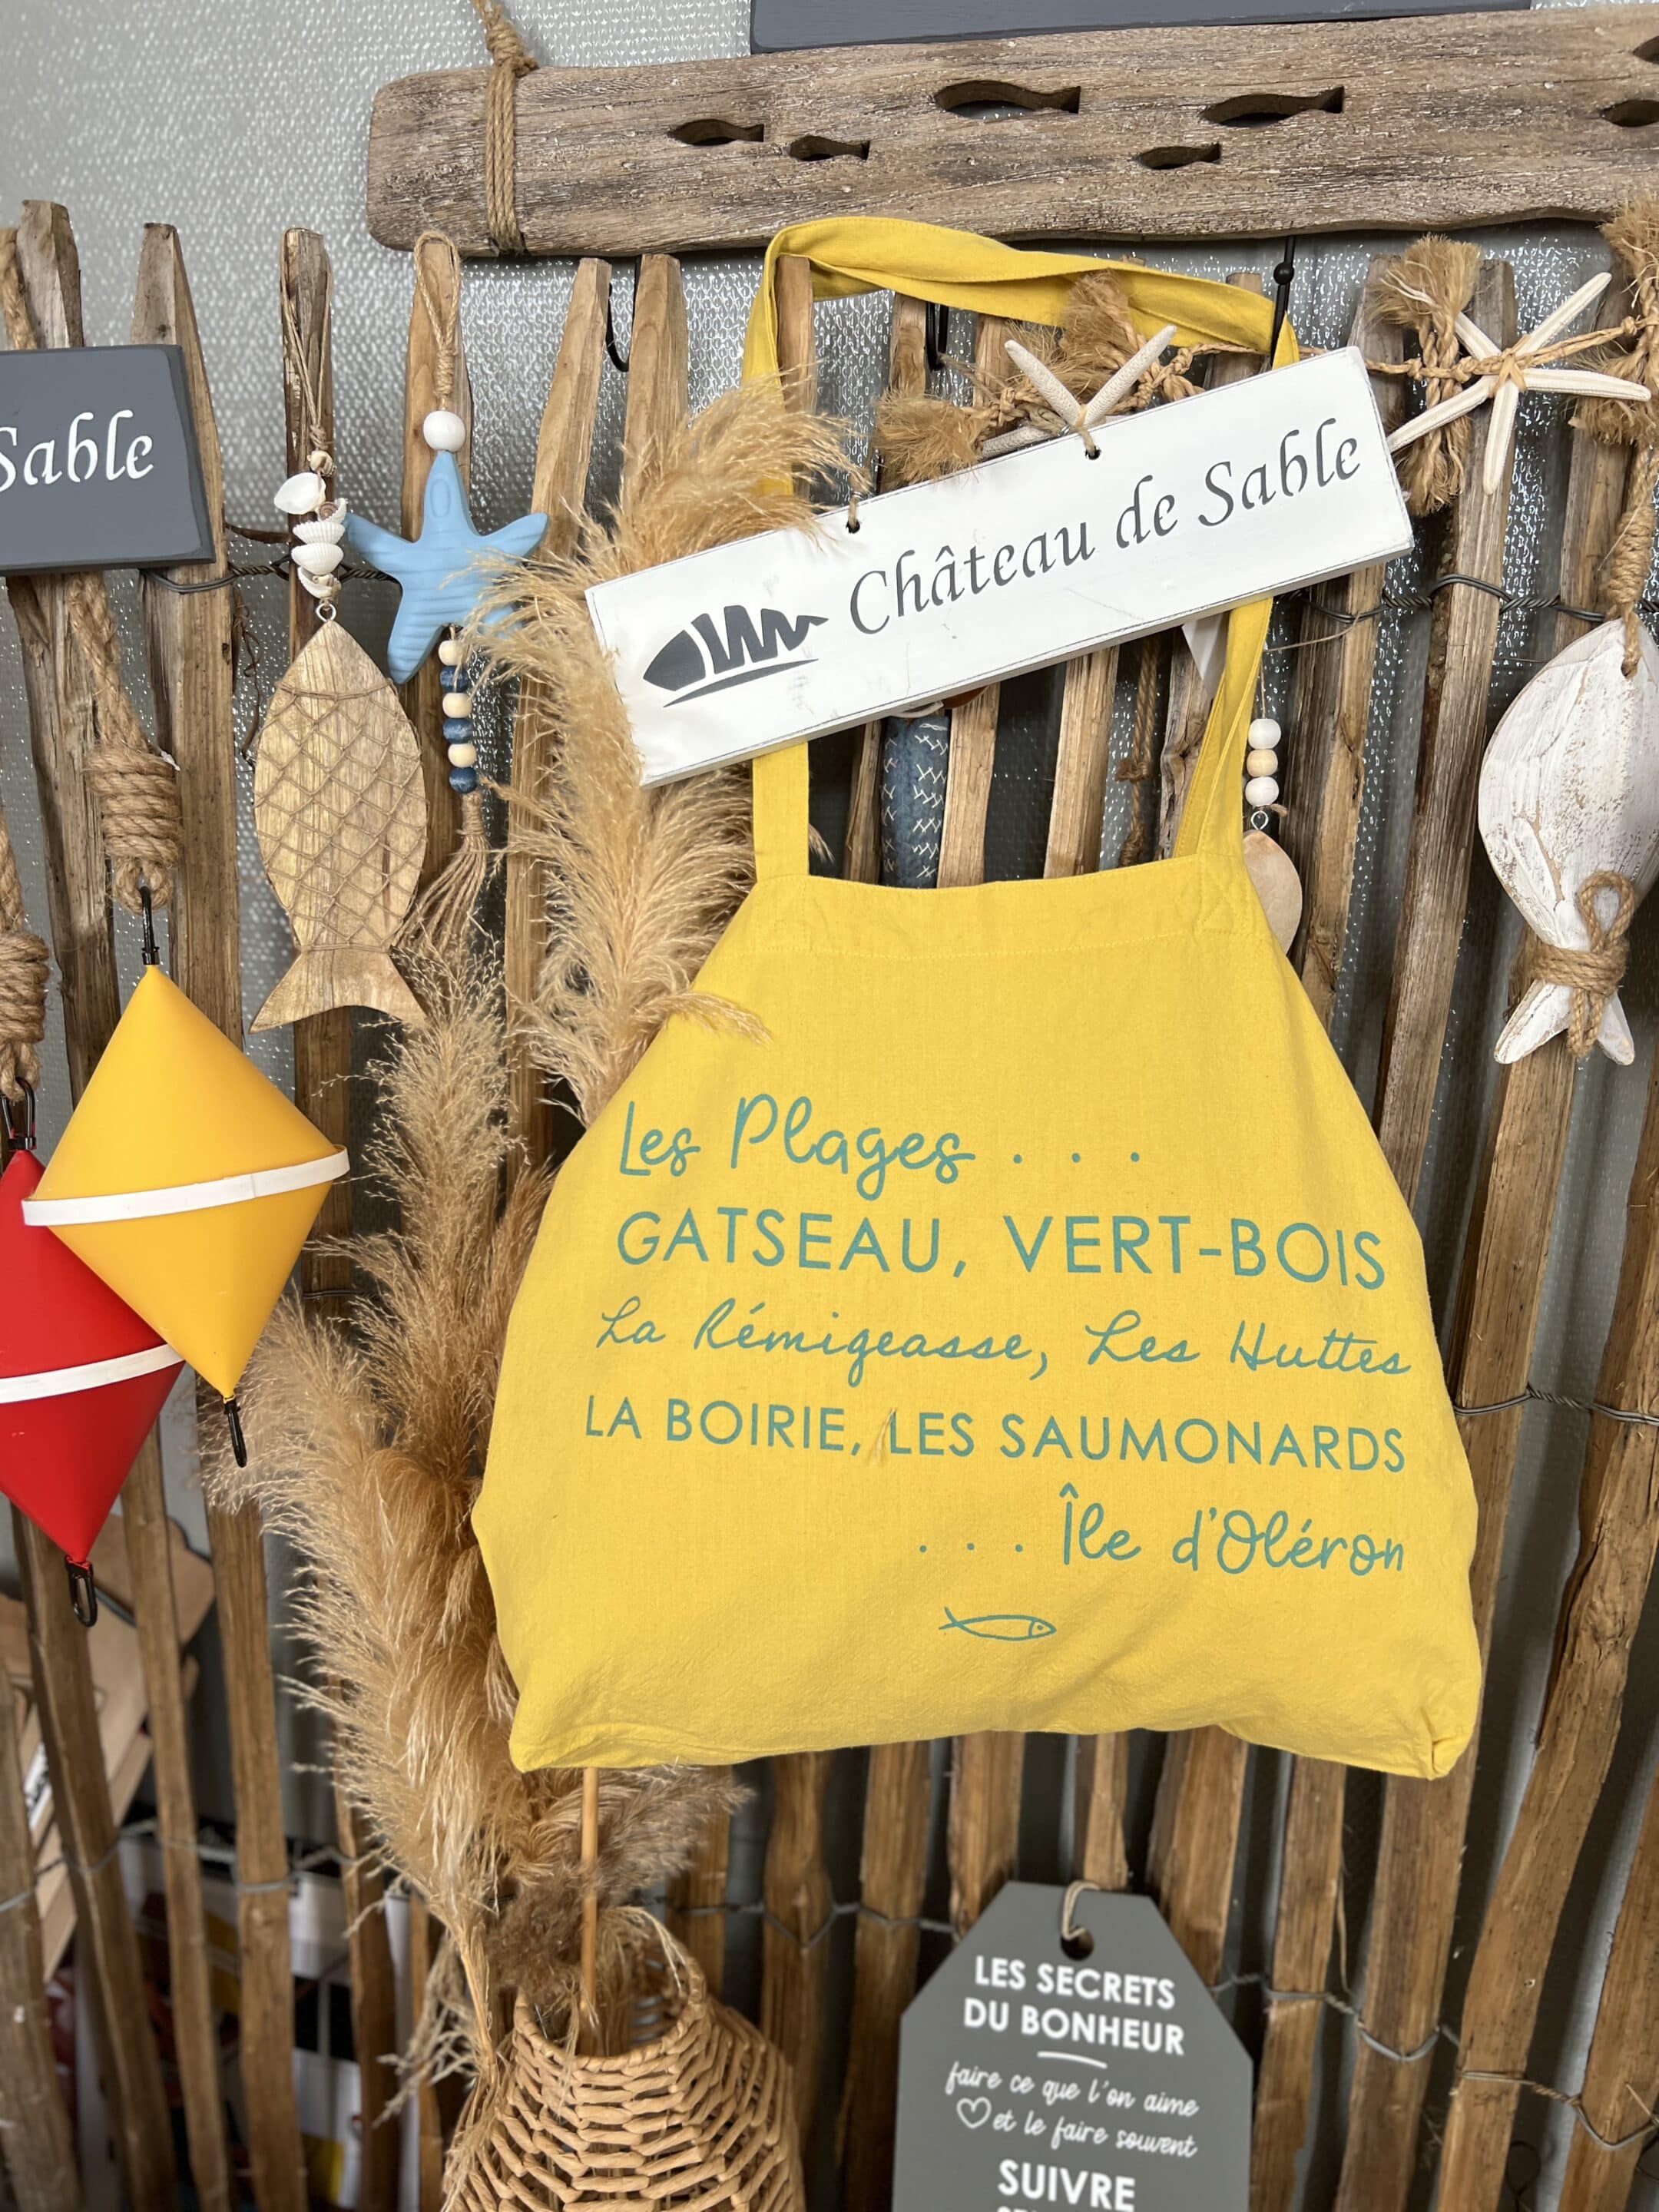 Sable
Château de Sable
Les Plages . . .
GATSEAU, VERT-BOIS
La Rémigeasse, Les Huttes
LA BOIRIE, LES SAUMONARDS
. . . Île d'Oléron
LES SECRETS
DU BONHEUR
faire ce que l'on aime
et le faire souvent
SUIVRE